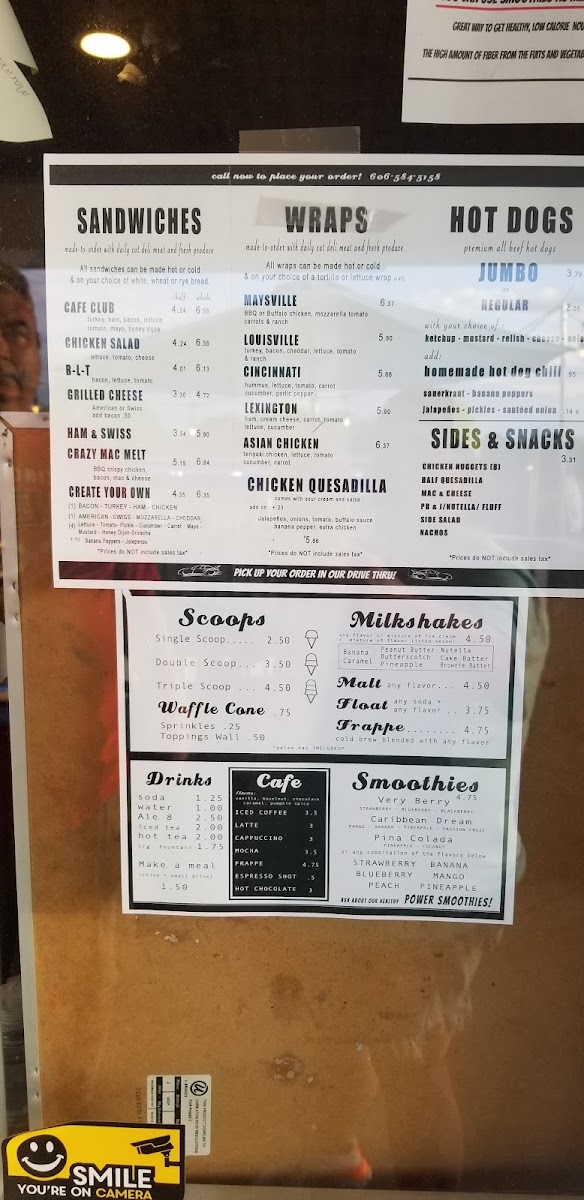 GREAT WAY TO GET HEALTHY, LOW CALORIE
THE HIGH AMOUNT OF FIBER FROM THE FUITS AND VEGETAB
call now to place your order! 606-584-5158
SANDWICHES
made-to-order with daily cut deli meat and fresh produce
All sandwiches can be made hot or cold
& on your choice of white, wheat or rye bread.
half whole
CAFE CLUB 4.24 6.56
turkey, ham, bacon, lettuce
tomato, mayo, honey dijon
CHICKEN SALAD 4.24 6.56
lettuce, tomato, cheese
B-L-T 4.01 6.13
bacon, lettuce, tomato
GRILLED CHEESE 3.30 4.72
American or Swiss
add bacon .50
HAM & SWISS 3.54 5.90
CRAZY MAC MELT 5.19 6.84
BBQ crispy chicken,
bacon, mac & cheese
CREATE YOUR OWN 4.35 6.35
(1) BACON - TURKEY - HAM - CHICKEN
(1) AMERICAN -SWISS - MOZZARELLA - CHEDDAR
(4) Lettuce - Tomato- Pickle - Cucumber - Carrot - Mayo -
Mustard - Honey Dijon-Sriracha
Banana Peppers - Jalepenos
*Prices do NOT include sales tax*
WRAPS
made-to-order with daily cut deli meat and fresh produce
All wraps can be made hot or cold
& on your choice of a tortilla or lettuce wrap
MAYSVILLE 6.37
BBQ or Buffalo chicken, mozzarella tomato
carrots & ranch
LOUISVILLE 5.90
turkey, bacon, cheddar, lettuce, tomato
& ranch
CINCINNATI 5.66
hummus, lettuce, tomato, carrot
cucumber, garlic pepper
LEXINGTON 5.90
ham, cream cheese, carrot, tomato
lettuce, cucumber
ASIAN CHICKEN 6.37
teriyaki chicken, lettuce, tomato
cucumber, carrot
CHICKEN QUESADILLA
comes with sour cream and salsa
add on + 23
Jalapeños, onions, tomato, buffalo sauce
banana pepper, extra chicken
5.66
*Prices do NOT include sales tax*
HOT DOGS
premium all beef hot dogs
JUMBO 3.79
or
REGULAR 2.36
with your choice of :
ketchup - mustard - relish - cheese - onio
add:
homemade hot dog chili .95
saurkraut - banana peppers
jalapeños - pickles - sautéed onion .14
SIDES & SNACKS
3.31
CHICKEN NUGGETS (8)
HALF QUESADILLA
MAC & CHEESE
PB & J/NUTELLA/ FLUFF
SIDE SALAD
NACHOS
*Prices do NOT include sales tax*
PICK UP YOUR ORDER IN OUR DRIVE THRU!
Scoops
Single Scoop..... 2.50
Double Scoop... 3.50
Triple Scoop ... 4.50
Waffle Cone .75
Sprinkles .25
Toppings Wall .50
*sales tax INCLUDED*
Milkshakes
any flavor or mixture of ice creme 4.50
/ mixture of flavor listed below:
Banana Peanut Butter Nutella
Caramel Butterscotch Cake Batter
Pineapple Brownie Batter
Malt any flavor... 4.50
Float any soda +
any flavor .. 3.75
Frappe........ 4.75
cold brew blended with any flavor
Drinks
soda 1.25
water 1.00
Ale 8 2.50
iced tea 2.00
hot tea 2.00
lrg. fountain 1.75
Make a meal
(chips + small drink)
1.50
Cafe
flavors:
vanilla, hazelnut, chocolate
caramel, pumpkin spice
ICED COFFEE 3.5
LATTE 3
CAPPUCCINO 3
MOCHA 3.5
FRAPPE 4.75
ESPRESSO SHOT .5
HOT CHOCOLATE 3
Smoothies
Very Berry 4.75
STRAWBERRY - BLUEBERRY - BLACKBERRY
Caribbean Dream
MANGO - BANANA - PINEAPPLE - PASSION FRUIT
Pina Colada
PINEAPPLE - COCONUT
or any combination of the flavors below
STRAWBERRY BANANA
BLUEBERRY MANGO
PEACH PINEAPPLE
ASK ABOUT OUR HEALTHY POWER SMOOTHIES!
SMILE
YOU'RE ON CAMERA